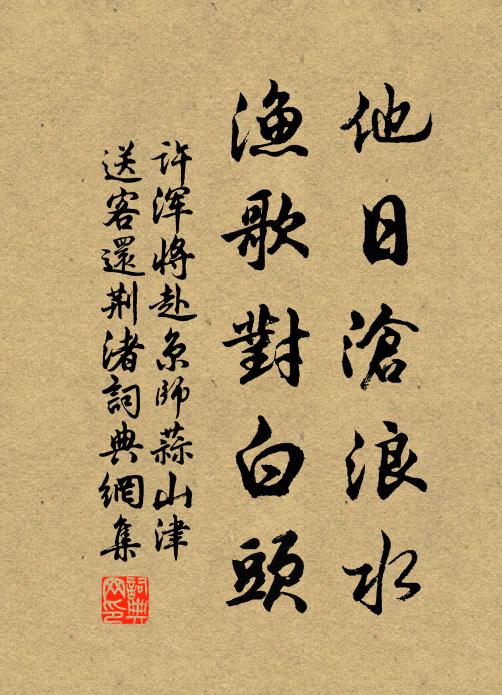 他日滄浪水
漁歌對白頭
許渾將赴京師蒜山津
送客還荆渚詞典網集
詞典網印